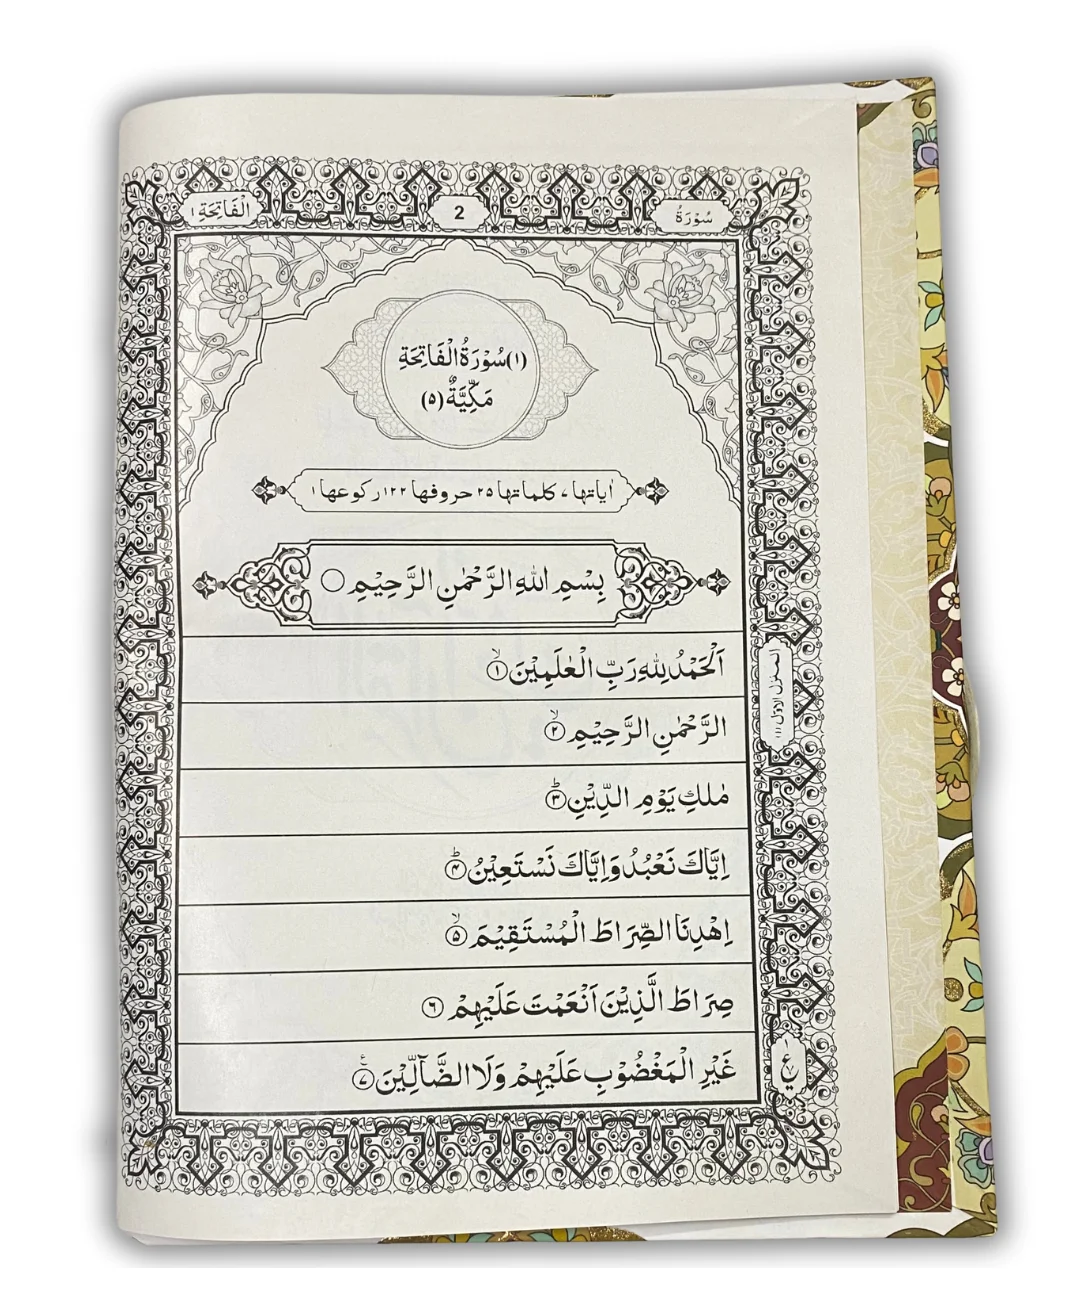 سُوْرَةُ 2 اَلْفَاتِحَة ١
(١) سُوْرَةُ الْفَاتِحَةِ
مَكِّيَّةٌ (٥)
اٰیاتها ٧ کلماتها ٢٥ حروفها ١٢٢ رکوعها ١
بِسْمِ اللهِ الرَّحْمٰنِ الرَّحِيْمِ
اَلْحَمْدُ لِلّٰهِ رَبِّ الْعٰلَمِيْنَ ۙ﴿١﴾
الرَّحْمٰنِ الرَّحِيْمِ ۙ﴿٢﴾
مٰلِكِ يَوْمِ الدِّيْنِ ؕ﴿٣﴾
اِيَّاكَ نَعْبُدُ وَاِيَّاكَ نَسْتَعِيْنُ ؕ﴿۴﴾
اِهْدِنَا الصِّرَاطَ الْمُسْتَقِيْمَ ۙ﴿۵﴾
صِرَاطَ الَّذِيْنَ اَنْعَمْتَ عَلَيْهِمْ ﴿۶﴾
غَيْرِ الْمَغْضُوْبِ عَلَيْهِمْ وَلَا الضَّآلِّيْنَ ﴿٧﴾
المنزل الاوّل ﴿١﴾
ع